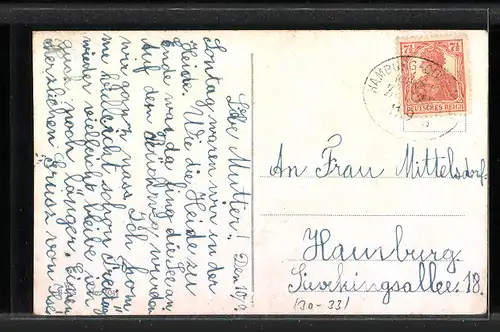 Den 10/9.
Liebe Mutter!
Sontag waren wir in der
Heide. Wie die Heide zu
Ende war da fing die See an.
Auf dem Rückweg wurden
wir ganz nass. Ich kom
me vielleicht schon Freitag
wieder vielleicht bleibe ich
auch noch länger. Einen
Herzlichen Gruss von
7½ 7½
DEUTSCHES REICH
HAMBURG
An Frau Mittelsdorf
Hamburg
Sievekingsallee 18.
(30-33)